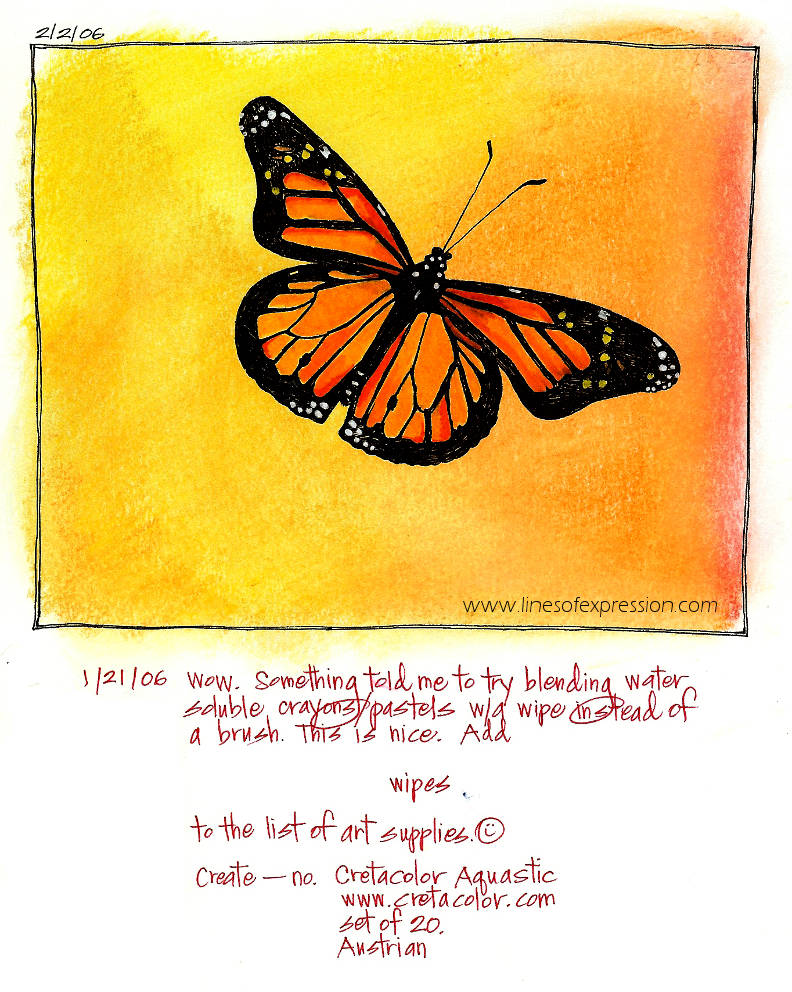 2/2/06
www.linesofexpression.com
1/21/06 Wow. Something told me to try blending water
soluble crayons/pastels w/a wipe instead of
a brush. This is nice. Add
wipes
to the list of art supplies.☺
Create — no. Cretacolor Aquastic
www.cretacolor.com
set of 20.
Austrian